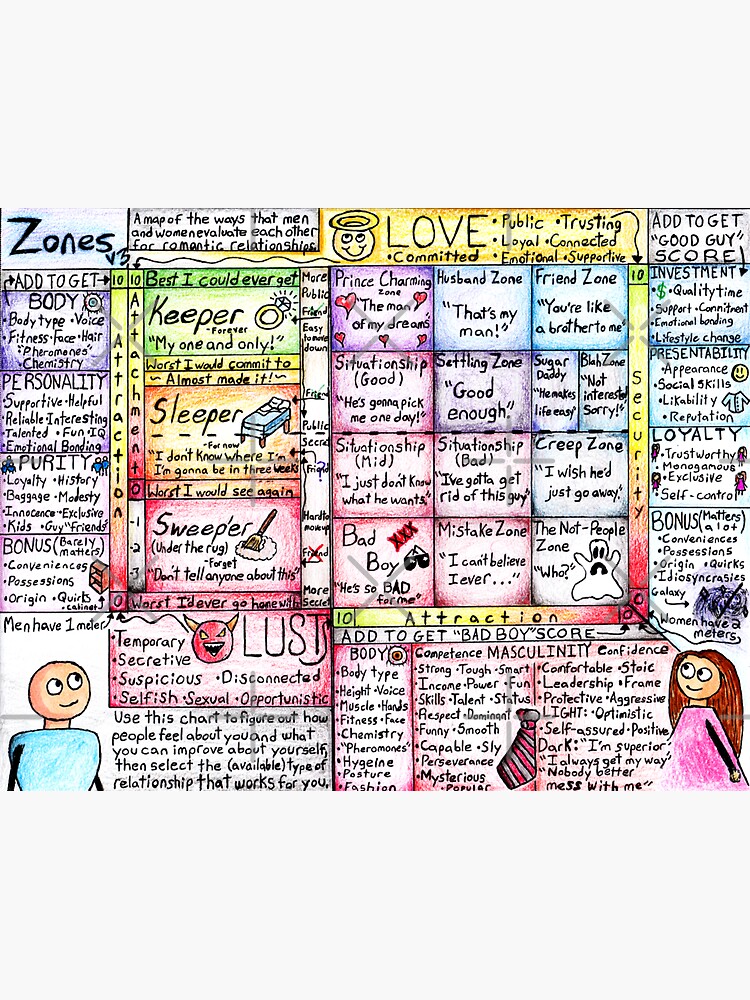 Zones
v3
A map of the ways that men
and women evaluate each other
for romantic relationships.
LOVE
•Committed
•Public •Trusting
•Loyal •Connected
Emotional •Supportive
ADD TO GET
"GOOD GUY"
SCORE!
ADD TO GET
BODY
•Body type •Voice
•Fitness •Face •Hair
"Pheromones"
•Chemistry
PERSONALITY
Supportive •Helpful
Reliable Interesting
Talented •Fun •IQ
Emotional Bonding
PURITY
•Loyalty •History
•Baggage •Modesty
Innocence •Exclusive
Kids •Guy "Friends"
BONUS (Barely
matters)
•Conveniences
•Possessions
•Origin •Quirks
•cabinet
Men have 1 meter
10
Attraction
0
10
Attachment
0
-1
-2
-3
Best I could ever get
Keeper
-Forever
"My one and only!"
Worst I would commit to
~ Almost made it! ~
Sleeper
-For now
"I don't know where I'm
I'm gonna be in three weeks"
Worst I would see again
Sweeper
(Under the rug)
-Forget
"Don't tell anyone about this"
Worst I'd ever go home with
More
Public
Friend
Easy
to move
down
Friend
Public
Secret
Friend
?
Hard to
move up
Friend
More
Secret
Prince Charming
zone
"The man
of my dreams"
Husband Zone
"That's my
man!"
Friend Zone
"You're like
a brother to me"
Situationship
(Good)
"He's gonna pick
me one day!"
Settling Zone
"Good
enough."
Sugar
Daddy
"He makes
life easy"
Blah Zone
"Not
interested
Sorry!"
Situationship
(Mid)
"I just don't know
what he wants."
Situationship
(Bad)
"I've gotta get
rid of this guy"
Creep Zone
"I wish he'd
just go away."
Bad
Boy
XXX
"He's so BAD
for me"
Mistake Zone
"I can't believe
I ever..."
The Not-People
Zone
"Who?"
10
Security
0
10
Attraction
0
INVESTMENT
•$ •Quality time
Support •Commitment
Emotional bonding
Lifestyle change
PRESENTABILITY
•Appearance
•Social Skills
•Likability
•Reputation
LOYALTY
•Trustworthy
Monogamous
•Exclusive
•Self-control
BONUS (Matters
a lot)
•Conveniences
•Possessions
Origin •Quirks
•Idiosyncrasies
Galaxy
Women have 2
meters
•Temporary
Secretive
Suspicious •Disconnected
•Selfish •Sexual •Opportunistic
LUST
Use this chart to figure out how
people feel about you and what
you can improve about yourself,
then select the (available) type of
relationship that works for you.
ADD TO GET "BAD BOY" SCORE
BODY
Body type
Height •Voice
Muscle •Hands
Fitness •Face
Chemistry
"Pheromones"
•Hygeine
•Posture
•Fashion
Competence MASCULINITY Confidence
•Strong •Tough •Smart
Income •Power •Fun
Skills •Talent •Status
Respect •Dominant
Funny •Smooth
•Capable •Sly
Perseverance
Mysterious
•Popular
•Comfortable •Stoic
•Leadership •Frame
Protective •Aggressive
LIGHT: •Optimistic
Self-assured •Positive
Dark: "I'm superior"
"I always get my way"
"Nobody better
mess with me"